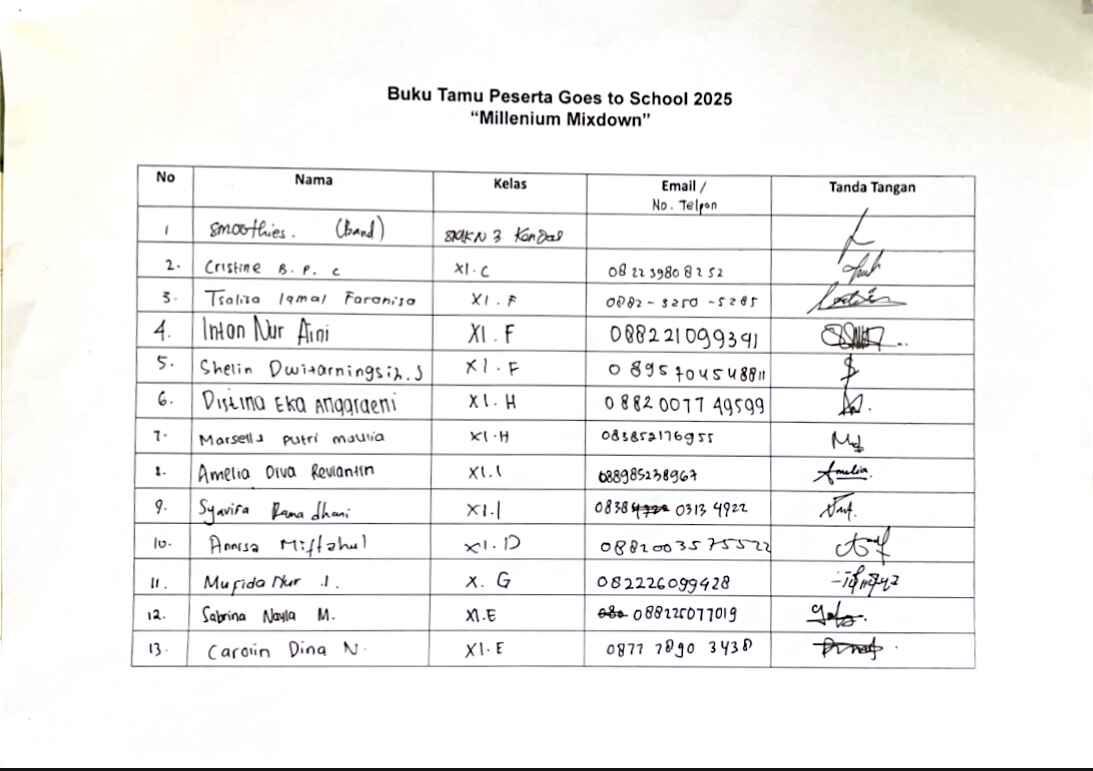 Buku Tamu Peserta Goes to School 2025
“Millenium Mixdown”
No Nama Kelas Email / No. Telpon Tanda Tangan
1 smoothies. (band) SMKN 3 Kendal
2. Cristine B. P. C XI.C 082239808252
3. Tsalisa Iqmal Faranisa XI.F 0882-5250-5285
4. Intan Nur Aini XI.F 088221099391
5. Shelin Dwitarningsih.S XI.F 0895704548811
6. Distina Eka Anggraeni XI.H 0882007749599
7. Marsella putri maulia XI.H 083852176955
8. Amelia Diva Reviantin XI.I 088985238967 Amelia.
9. Syavira Rama dhani XI.I 0838 0313 4922
10. Annisa Miftahul XI.D 0882003575522
11. Mufida Nur I. X.G 082226099428
12. Sabrina Nayla M. XI.E 088225077019
13. Carolin Dina N. XI.E 0877 7890 3438